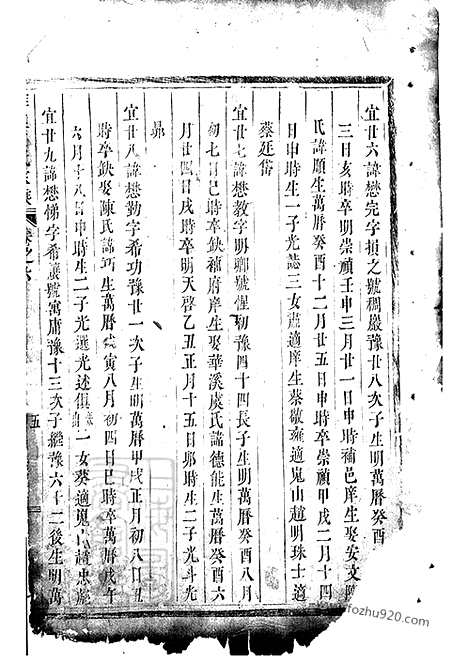 宜廿六諱懋完字損之號稠嚴豫廿八次子生明萬曆癸酉
三日亥時卒明崇禎壬申三月廿一日申時補邑庠生娶安文陳
氏諱順生萬曆癸酉十二月廿五日申時卒崇禎甲戌二月十四
日申時生一子光誌三女盧適庠生蔡敬雍適嵬山趙明珠士適
蔡廷岱
宜廿七諱懋教字明卿號惺初豫四十四長子生明萬曆癸酉八月
初七日巳時卒缺補府庠生娶華溪虞氏諱德能生萬曆癸酉六
月廿四日戌時卒明天啓乙丑正月十五日卯時生二子光斗光
昴
宜廿八諱懋勤字希功豫廿一次子生明萬曆甲戌正月初八日丑
時卒缺娶陳氏諱 生萬曆 寅八月初四日巳時卒萬曆戊午
六月十八日申時生二子光選光述俱 一女葵適嵬山趙忠
宜廿九諱懋錫字希讓號寓庸豫十三次子繼豫六十二後生明萬
卷之
五
fozhu920.com